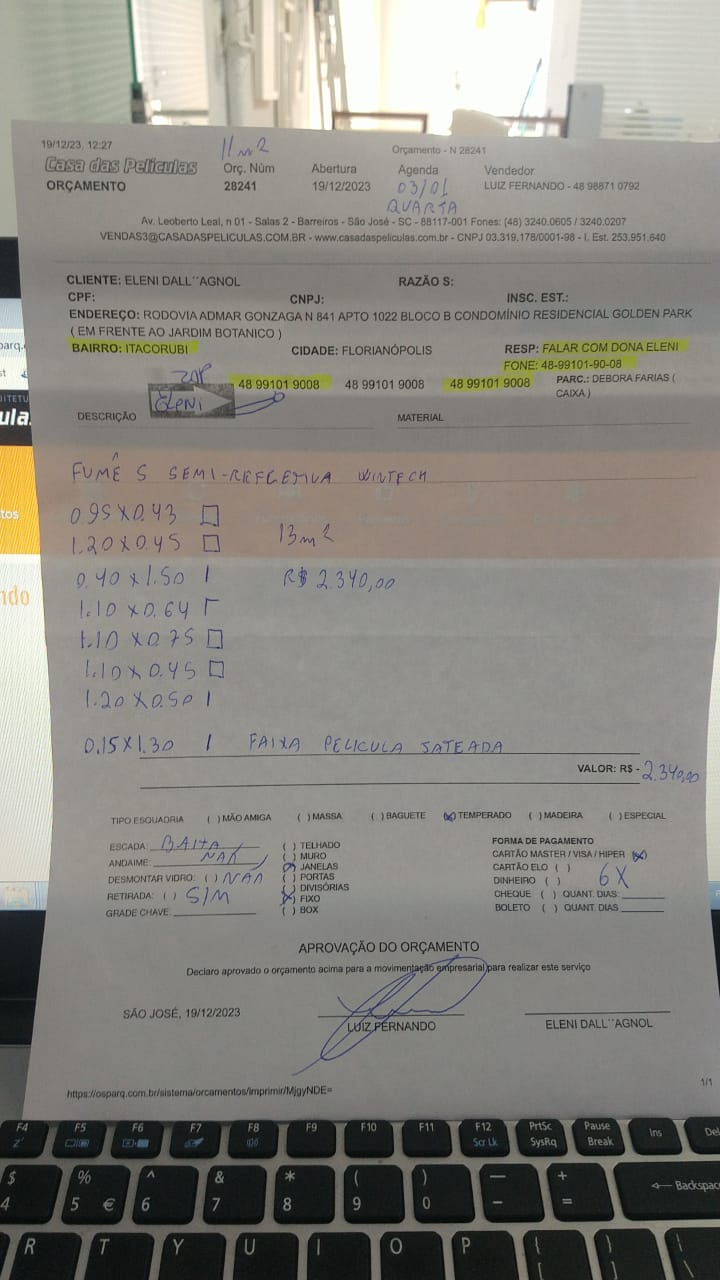 19/12/23, 12:27
11 m2
Orçamento - N 28241
Casa das Películas
ORÇAMENTO
Orç. Núm
28241
Abertura
19/12/2023
Agenda
03/01
QUARTA
Vendedor
LUIZ FERNANDO - 48 98871 0792
Av. Leoberto Leal, n 01 - Salas 2 - Barreiros - São José - SC - 88117-001 Fones: (48) 3240.0605 / 3240.0207
VENDAS3@CASADASPELICULAS.COM.BR - www.casadaspeliculas.com.br - CNPJ 03.319.178/0001-98 - I. Est. 253.951.640
CLIENTE: ELENI DALL´´AGNOL RAZÃO S:
CPF: CNPJ: INSC. EST.:
ENDEREÇO: RODOVIA ADMAR GONZAGA N 841 APTO 1022 BLOCO B CONDOMÍNIO RESIDENCIAL GOLDEN PARK
( EM FRENTE AO JARDIM BOTANICO )
BAIRRO: ITACORUBI CIDADE: FLORIANÓPOLIS RESP: FALAR COM DONA ELENI
FONE: 48-99101-90-08
ZAP
ELENI
48 99101 9008 48 99101 9008 48 99101 9008 PARC.: DEBORA FARIAS (
CAIXA )
DESCRIÇÃO MATERIAL
FUMÊ S SEMI-REFLETIVA WINTECH
0.95X0.43
1.20X0.45 13m²
0.40X1.50 1 R$ 2.340,00
1.10X0.64
1.10X0.75
1.10X0.45
1.20X0.50 1
0.15X1.30 1 FAIXA PELICULA JATEADA
VALOR: R$ - 2.340,00
TIPO ESQUADRIA ( ) MÃO AMIGA ( ) MASSA ( ) BAGUETE (X) TEMPERADO ( ) MADEIRA ( ) ESPECIAL
ESCADA: BAIXA
ANDAIME: NÃO
DESMONTAR VIDRO: ( ) NÃO
RETIRADA: ( ) SIM
GRADE CHAVE:
( ) TELHADO
( ) MURO
(X) JANELAS
( ) PORTAS
( ) DIVISÓRIAS
(X) FIXO
( ) BOX
FORMA DE PAGAMENTO
CARTÃO MASTER / VISA / HIPER (X)
CARTÃO ELO ( )
DINHEIRO ( ) 6X
CHEQUE ( ) QUANT. DIAS:
BOLETO ( ) QUANT. DIAS
APROVAÇÃO DO ORÇAMENTO
Declaro aprovado o orçamento acima para a movimentação empresarial para realizar este serviço
SÃO JOSÉ, 19/12/2023
LUIZ FERNANDO
ELENI DALL´´AGNOL
https://osparq.com.br/sistema/orcamentos/imprimir/MjgyNDE=
1/1
F4 F5 F6 F7 F8 F9 F10 F11 F12 PrtSc Pause Ins Del
Scr Lk SysRq Break
$ % ^ & * ( ) — +
4 5 € 6 7 8 9 0 - = Backspac
R T Y U I O P { }
[ ]